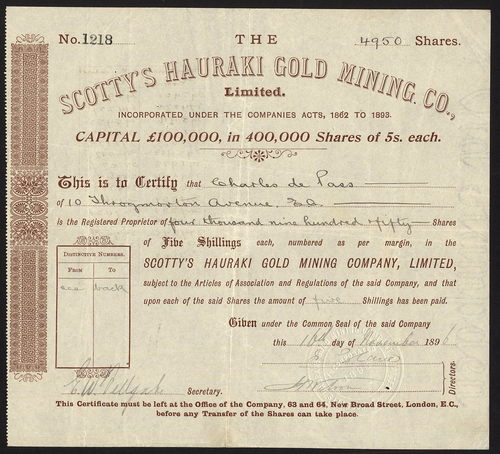 No. 1218 THE 4950 Shares.
SCOTTY'S HAURAKI GOLD MINING CO.,
Limited.
INCORPORATED UNDER THE COMPANIES ACTS, 1862 TO 1893.
CAPITAL £100,000, in 400,000 Shares of 5s. each.
This is to Certify that Charles de Pass
of 10 Throgmorton Avenue, E.C.
is the Registered Proprietor of four thousand nine hundred & fifty Shares
of Five Shillings each, numbered as per margin, in the
SCOTTY'S HAURAKI GOLD MINING COMPANY, LIMITED,
subject to the Articles of Association and Regulations of the said Company, and that
upon each of the said Shares the amount of five Shillings has been paid.
Given under the Common Seal of the said Company
this 16th day of November 1896
DISTINCTIVE NUMBERS.
FROM TO
see back
Secretary.
Directors.
This Certificate must be left at the Office of the Company, 63 and 64, New Broad Street, London, E.C.,
before any Transfer of the Shares can take place.